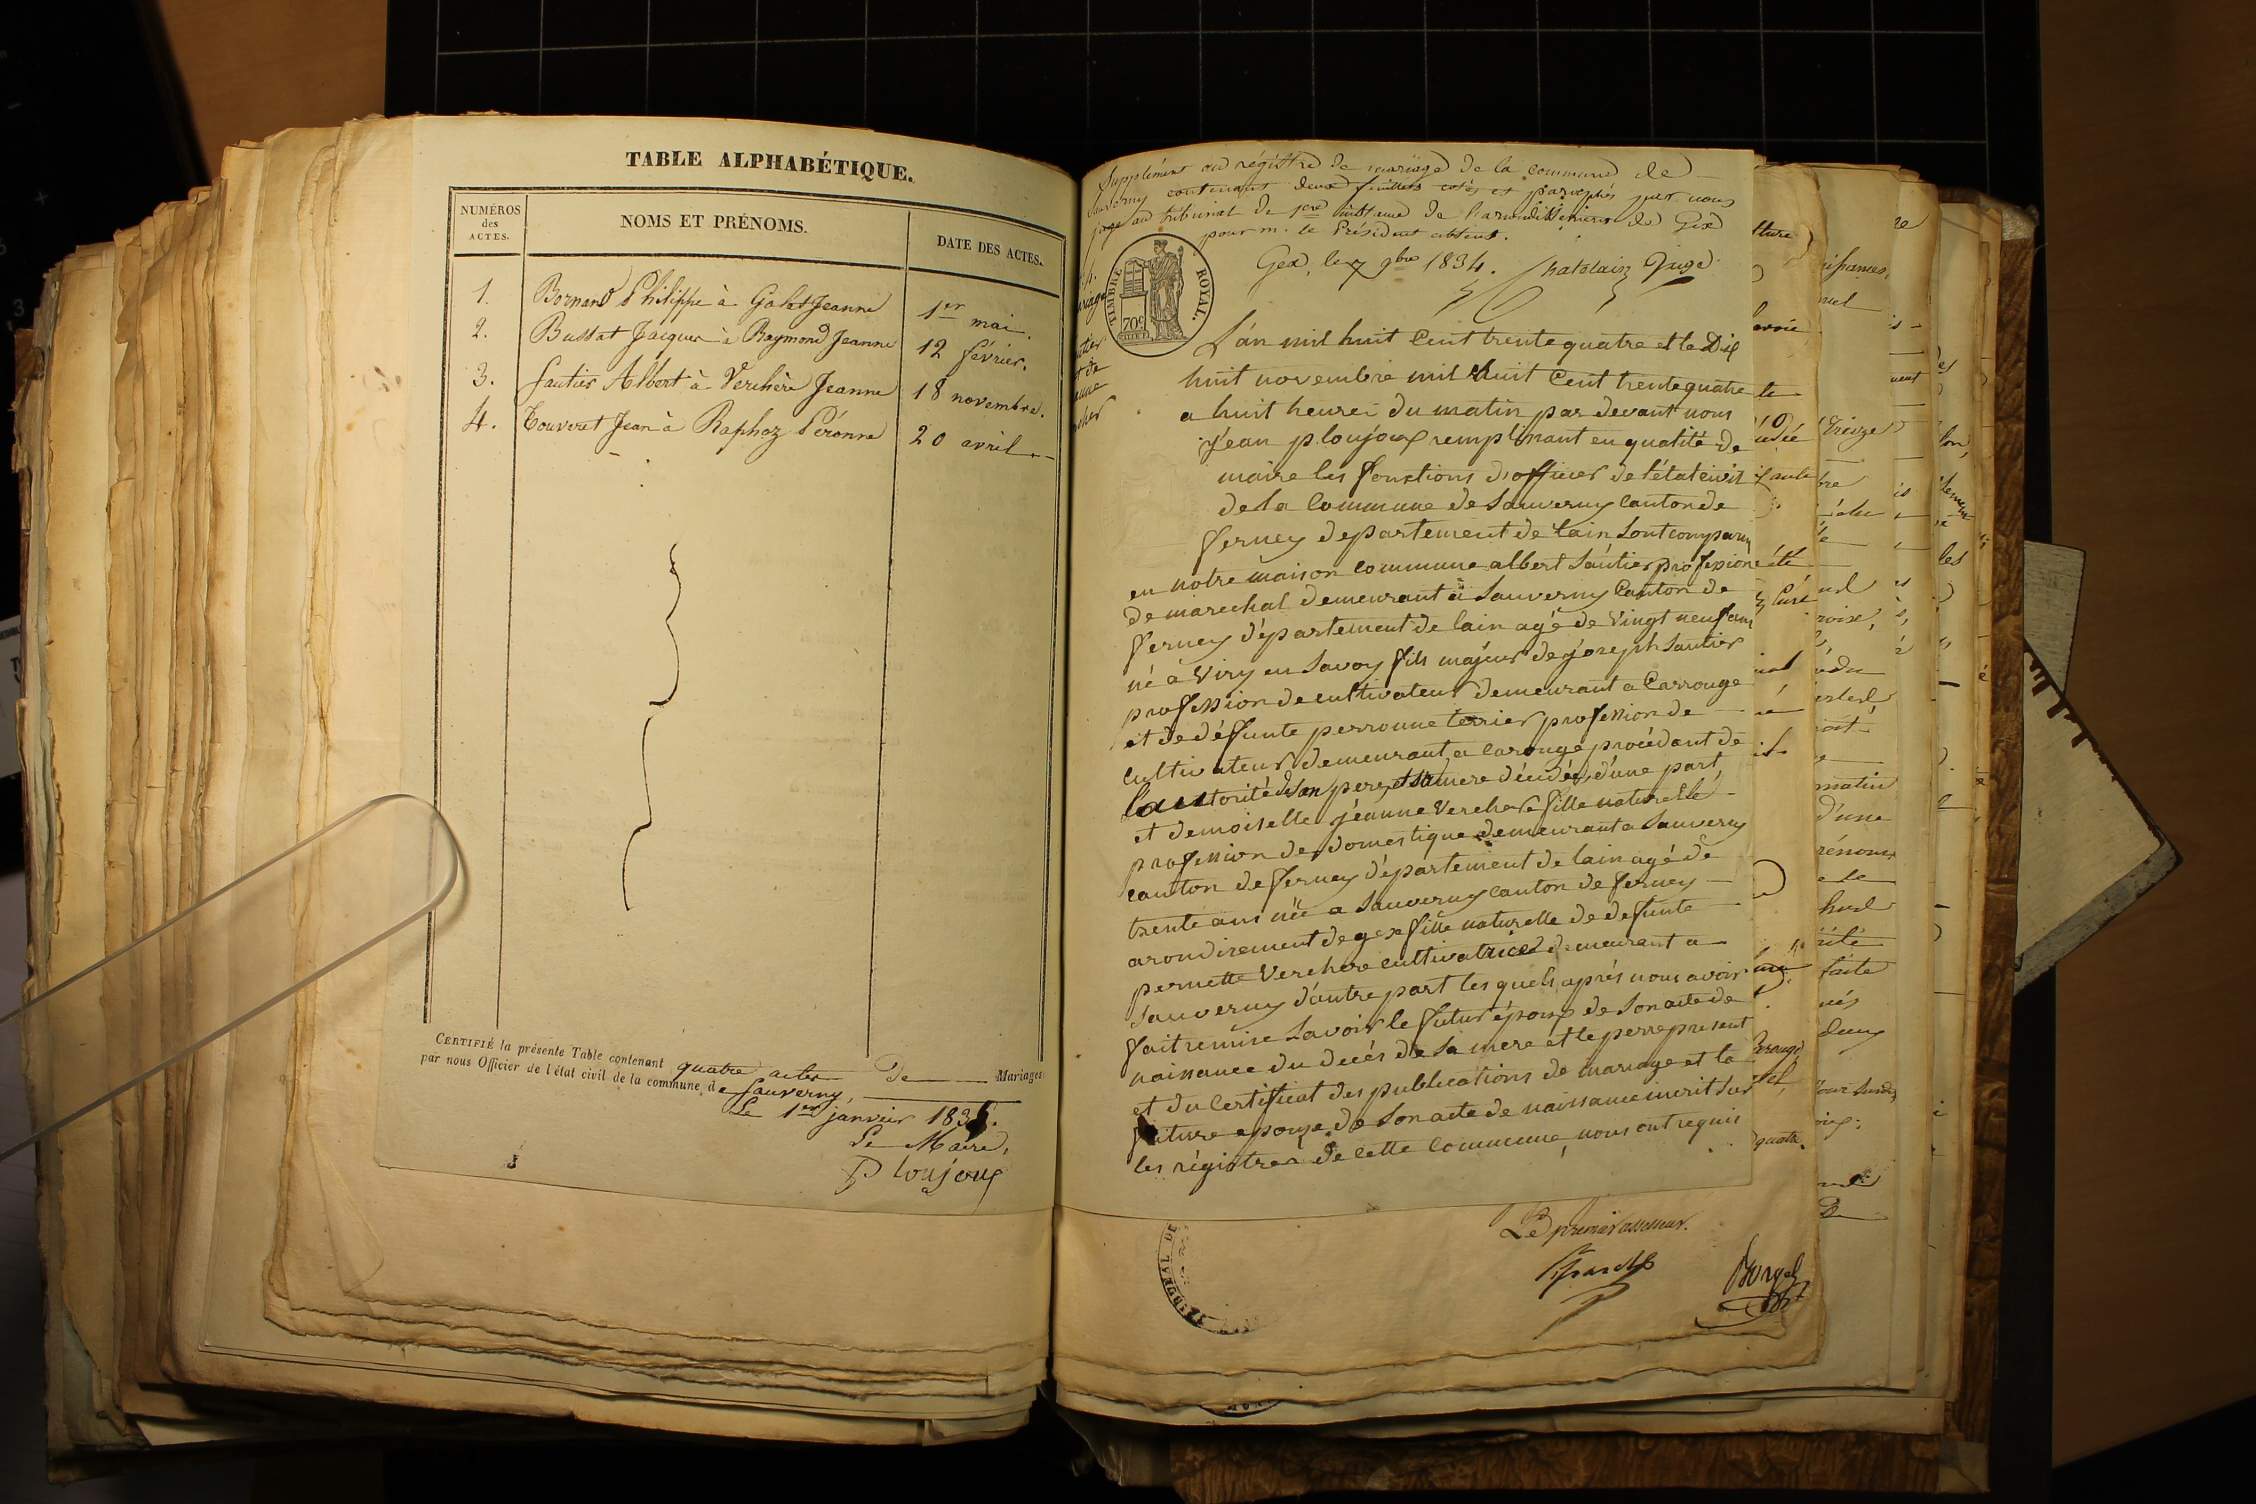 TABLE ALPHABÉTIQUE.
NUMÉROS
des
ACTES.
NOMS ET PRÉNOMS.
DATE DES ACTES.
1. Bornand Philippe à Galot Jeanne 1er mai.
2. Bussat Jacques à Raymond Jeanne 12 février.
3. Sautier Albert à Verchère Jeanne 18 novembre.
4. Touveret Jean à Raphoz Péronne 20 avril
CERTIFIÉ la présente Table contenant quatre actes De Mariages
par nous Officier de l'état civil de la commune de Sauverny,
Le 1er janvier 1835.
Le Maire,
P loujoux
Supplément au régistre de mariage de la commune de
Sauverny contenant deux feuillets cotés et paraphés par nous
juge au tribunal de 1ere instance de l'arondissement de Gex
pour m. le Président absent.
Gex, le 7 9bre 1834. Chatelain Juge
TIMBRE ROYAL.
70c
L'án mil huit Cent trente quatre et le Dix
huit novembre mil huit Cent trente quatre
a huit heures du matin par devant nous
Jean p. loujoux remplissant en qualité de
maire les fonctions d'officier de l'état civil
de la Commune de Sauverny Canton de
ferney departement de lain sont comparu
en notre maison commune albert Sautier profession
de marechal demeurant à Sauverny Canton de
ferney département de lain agé de vingt neuf ans
né a Viry en Savoy fils majeur de joseph Sautier
profession de cultivateur demeurant a Carrouge
et de défunte perronne terrier profession de
cultivateur demeurant a carouge procédant de
l'autorité de son pere et sa mere décidés d'une part
et demoiselle jéanne Verchere fille naturelle
profession de domestique demeurant a Sauverny
canton de ferney département de lain agé de
trente ans née a Sauverny canton de ferney
arondirement de gex fille naturelle de defunte
pernette Verchere cultivatrice demeurant a
Sauverny d'autre part les quels aprés nous avoir
fait remise Savoir le futur époux de Son acte de
naissance du décés de Sa mere et le perre present
et du Certificat des publications de mariage et la
future epouze de Son acte de naissance inscrit Sur
les régistres de cette Commune, nous ont requis
Le premier assesseur.